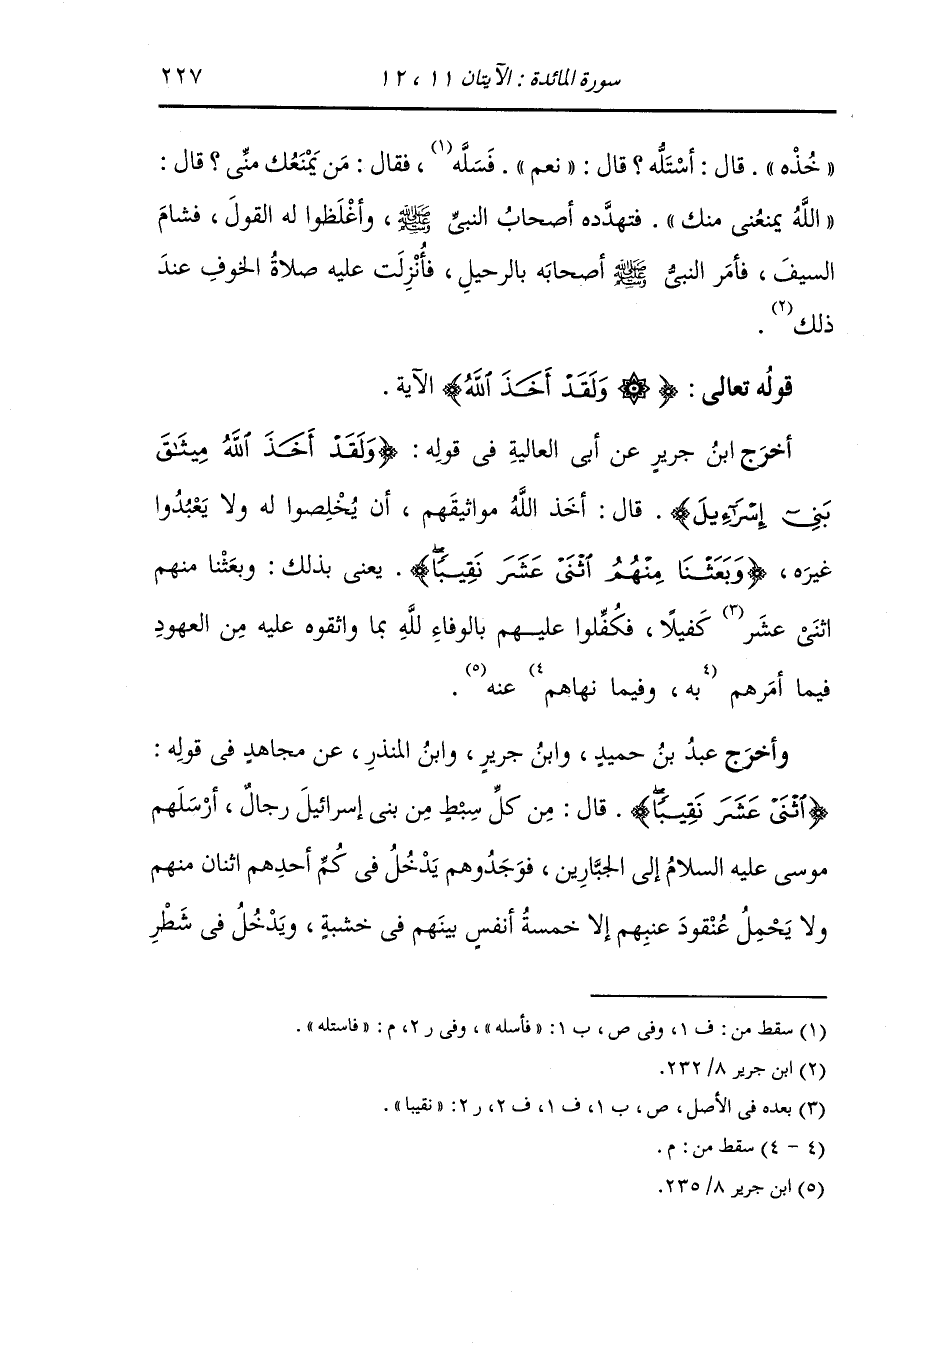 سورة المائدة : الآيتان ١١ ، ١٢ ٢٢٧
« خُذْه » . قال : أسْتَلُّه ؟ قال : « نعم » . فَسَلَّه(١) ، فقال : مَن يَمْنَعُك منِّى ؟ قال :
« اللَّهُ يمنعُنى منك » . فتهدَّده أصحابُ النبىِّ ﷺ ، وأغْلَظوا له القولَ ، فشامَ
السيفَ ، فأمَر النبىُّ ﷺ أصحابَه بالرحيلِ ، فأُنْزِلَت عليه صلاةُ الخوفِ عندَ
ذلك(٢) .
قولُه تعالى : ﴿ ۞ وَلَقَدْ أَخَذَ ٱللَّهُ ﴾ الآية .
أخرَج ابنُ جريرٍ عن أبى العاليةِ فى قولِه : ﴿ وَلَقَدْ أَخَذَ ٱللَّهُ مِيثَٰقَ
بَنِىٓ إِسْرَٰٓءِيلَ ﴾ . قال : أخَذ اللَّهُ مواثيقَهم ، أن يُخْلِصوا له ولا يَعْبُدُوا
غيرَه ، ﴿ وَبَعَثْنَا مِنْهُمُ ٱثْنَىْ عَشَرَ نَقِيبًاۖ ﴾ . يعنى بذلك : وبعَثْنا منهم
اثنَىْ عشَر(٣) كَفيلًا ، فكُفِّلوا عليهم بالوفاءِ للَّهِ بما واثقوه عليه مِن العهودِ
فيما أمَرهم (٤به ، وفيما نهاهم٤) عنه(٥) .
وأخرَج عبدُ بنُ حميدٍ ، وابنُ جريرٍ ، وابنُ المنذرِ ، عن مجاهدٍ فى قولِه :
﴿ ٱثْنَىْ عَشَرَ نَقِيبًاۖ ﴾ . قال : مِن كلِّ سِبْطٍ مِن بنى إسرائيلَ رجالٌ ، أرْسَلَهم
موسى عليه السلامُ إلى الجبَّارِين ، فوَجَدُوهم يَدْخُلُ فى كُمِّ أحدِهم اثنان منهم
ولا يَحْمِلُ عُنْقودَ عنبِهم إلا خمسةُ أنفسٍ بينَهم فى خشبةٍ ، ويَدْخُلُ فى شَطْرِ
(١) سقط من : ف ١، وفى ص ، ب ١: « فأسله » ، وفى ر ٢، م : « فاستله » .
(٢) ابن جرير ٨/ ٢٣٢.
(٣) بعده فى الأصل ، ص ، ب ١، ف ١، ف ٢، ر ٢: « نقيبا » .
(٤ – ٤) سقط من : م .
(٥) ابن جرير ٨/ ٢٣٥.